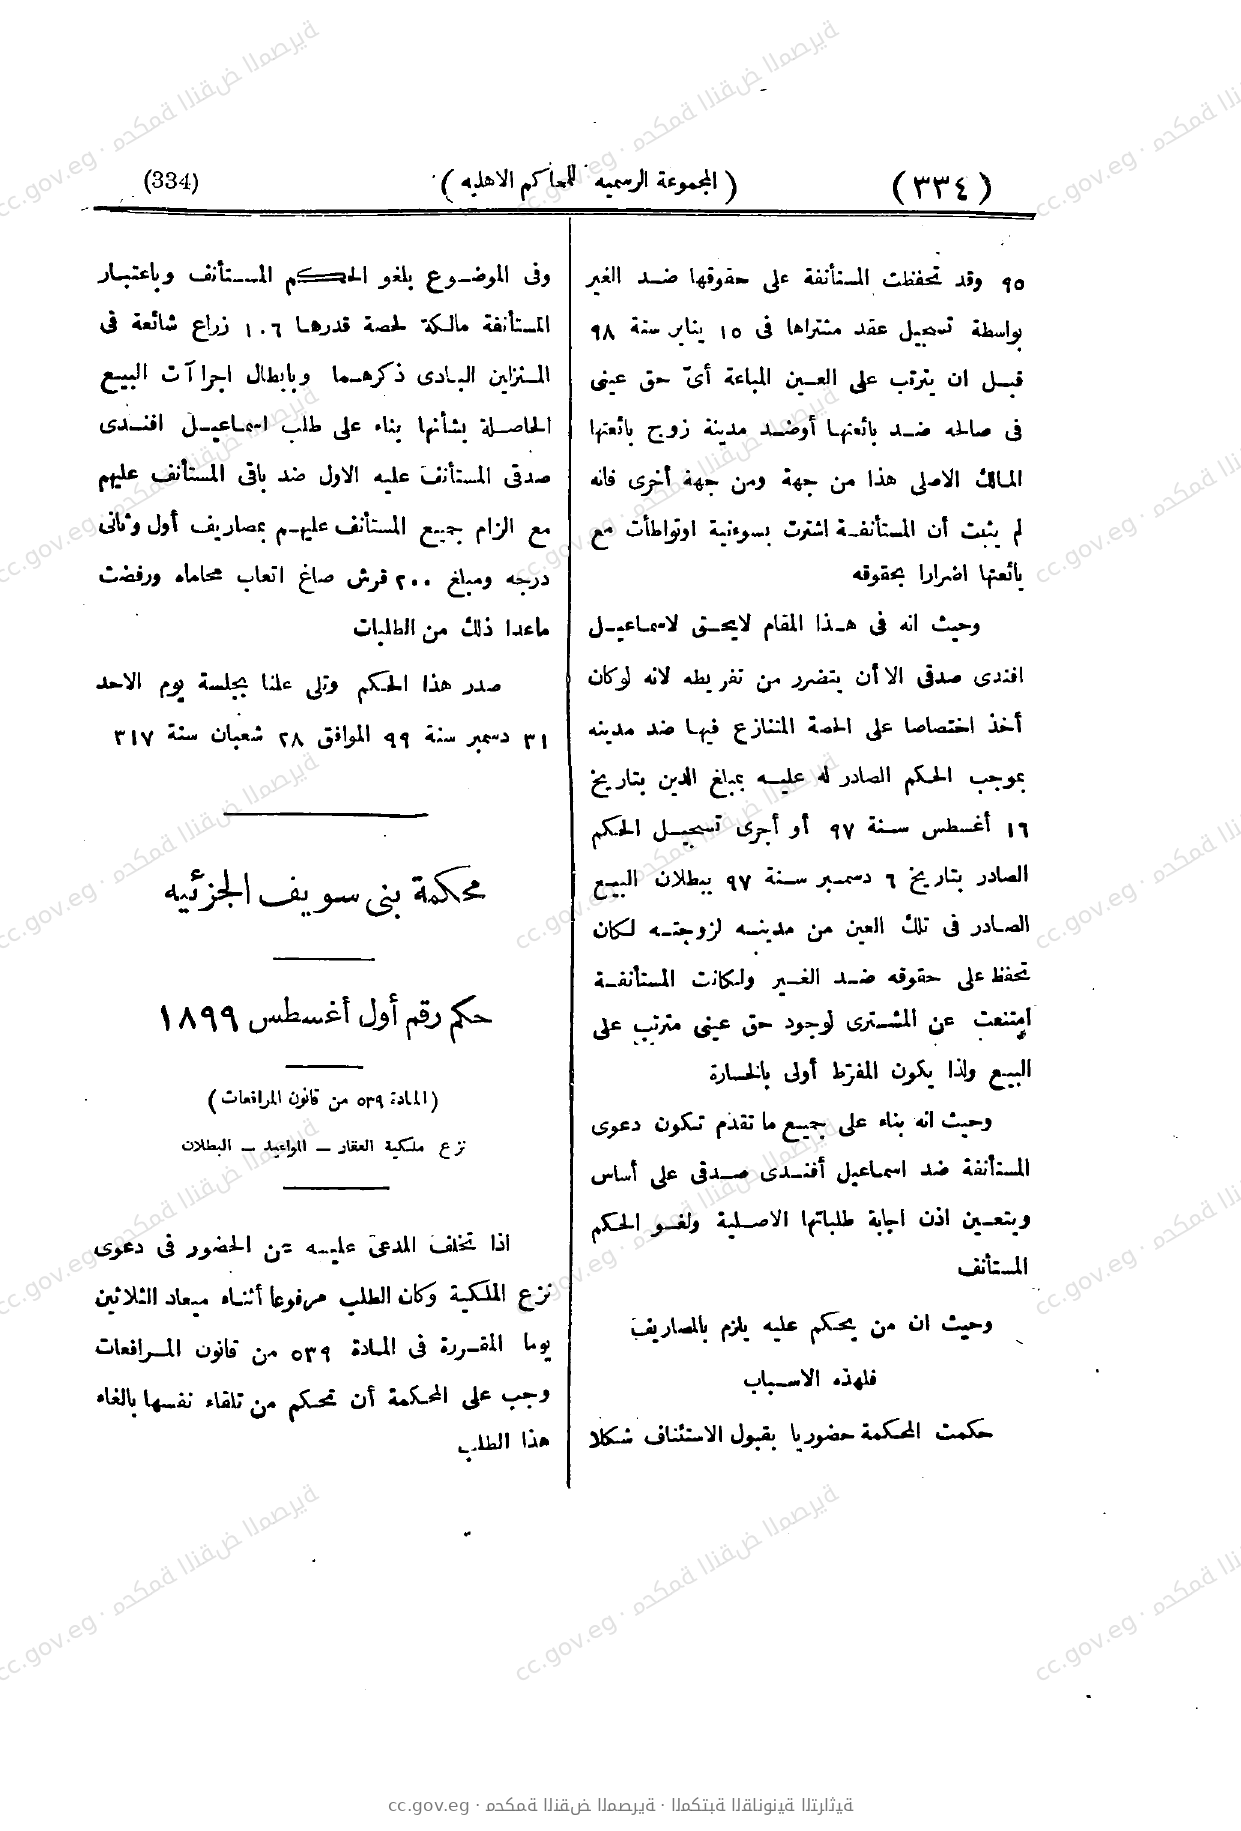 (٣٣٤) ( المجموعة الرسميه للمحاكم الاهليه ) (334)
٩٥ وقد تحفظت المستأنفة على حقوقها ضد الغير
بواسطة تسجيل عقد مشتراها فى ١٥ يناير سنة ٩٨
قبل ان يترتب على العين المباعة أىّ حق عينى
فى صالحه ضد بائعتها أوضد مدينة زوج بائعتها
المالك الاصلى هذا من جهة ومن جهة أخرى فانه
لم يثبت أن المستأنفة اشترت بسوءنية اوتواطأت مع
بائعتها اضرارا بحقوقه
وحيث انه فى هذا المقام لايحق لاسماعيل
افندى صدقى الا أن يتضرر من تفريطه لانه لوكان
أخذ اختصاصا على الحصة المتنازع فيها ضد مدينه
بموجب الحكم الصادر له عليه بمبلغ الدين بتاريخ
١٦ أغسطس سنة ٩٧ أو أجرى تسجيل الحكم
الصادر بتاريخ ٦ دسمبر سنة ٩٧ ببطلان البيع
الصادر فى تلك العين من مدينه لزوجته لكان
تحفظ على حقوقه ضد الغير ولكانت المستأنفة
امتنعت عن المشترى لوجود حق عينى مترتب على
البيع ولذا يكون المفرّط أولى بالخسارة
وحيث انه بناء على جميع ما تقدم تكون دعوى
المستأنفة ضد اسماعيل أفندى صدقى على أساس
ويتعين اذن اجابة طلباتها الاصلية ولغو الحكم
المستأنف
وحيث ان من يحكم عليه يلزم بالمصاريف
فلهذه الاسباب
حكمت المحكمة حضوريا بقبول الاستئناف شكلا
وفى الموضوع بلغو الحكم المستأنف وباعتبار
المستأنفة مالكة لحصة قدرها ١٠٦ زراع شائعة فى
المنزلين البادى ذكرهما وبابطال اجراآت البيع
الحاصلة بشأنها بناء على طلب اسماعيل افندى
صدقى المستأنف عليه الاول ضد باقى المستأنف عليهم
مع الزام جميع المستأنف عليهم بمصاريف أول وثانى
درجه ومبلغ ٢٠٠ قرش صاغ اتعاب محاماه ورفضت
ماعدا ذلك من الطلبات
صدر هذا الحكم وتلى علنا بجلسة يوم الاحد
٣١ دسمبر سنة ٩٩ الموافق ٢٨ شعبان سنة ٣١٧
محكمة بنى سويف الجزئيه
حكم رقم أول أغسطس ١٨٩٩
(المادة ٥٣٩ من قانون المرافعات)
نزع ملكية العقار – المواعيد – البطلان
اذا تخلف المدعى عليه عن الحضور فى دعوى
نزع الملكية وكان الطلب مرفوعا أثناء ميعاد الثلاثين
يوما المقررة فى المادة ٥٣٩ من قانون المرافعات
وجب على المحكمة أن تحكم من تلقاء نفسها بالغاء
هذا الطلب
cc.gov.eg · محكمة النقض المصرية · المكتبة القانونية التراثية